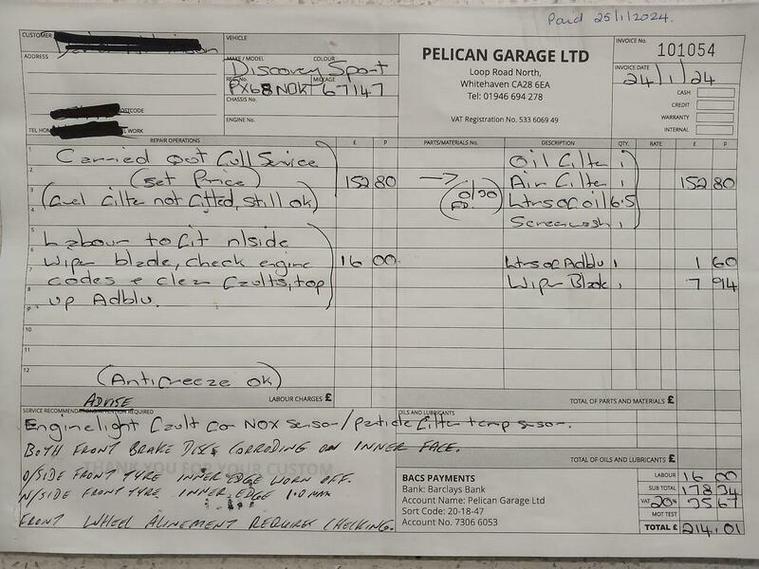 Paid 25/1/2024.
CUSTOMER
VEHICLE
PELICAN GARAGE LTD
INVOICE No.
101054
ADDRESS
MAKE / MODEL
COLOUR
Discovery Sport
Loop Road North,
Whitehaven CA28 6EA
Tel: 01946 694 278
INVOICE DATE
24/1/24
REG. No.
MILEAGE
PX68NOK 67147
CASH
CHASSIS No.
CREDIT
POSTCODE
WARRANTY
ENGINE No.
VAT Registration No. 533 6069 49
INTERNAL
TEL HOME
WORK
REPAIR OPERATIONS £ P PARTS/MATERIALS No. DESCRIPTION QTY. RATE £ P
1 Carried Out Full Service Oil Filter 1
2 (Set Price) 152 80 Air Filter 1 152 80
3 (Fuel filter not fitted, still ok) 0/30 FD. Ltrs of oil 6.5
4 Screenwash 1
5 Labour to fit n/side
6 Wiper blade, check engine 16 00 Ltrs of Adblu 1 1 60
7 codes & clear faults, top Wiper Blade 1 7 94
8 up Adblu.
9
10
11
12 (Antifreeze ok)
ADVISE
LABOUR CHARGES £
TOTAL OF PARTS AND MATERIALS £
SERVICE RECOMMENDATION/ATTENTION REQUIRED
OILS AND LUBRICANTS
Engine light fault for NOX sensor/particle filter temp sensor.
BOTH FRONT BRAKE DISCS CORRODING ON INNER FACE.
TOTAL OF OILS AND LUBRICANTS £
THANK YOU FOR YOUR CUSTOM
O/SIDE FRONT TYRE INNER EDGE WORN OFF.
N/SIDE FRONT TYRE INNER EDGE 1.0MM
FRONT WHEEL ALINEMENT REQUIRES CHECKING.
BACS PAYMENTS
Bank: Barclays Bank
Account Name: Pelican Garage Ltd
Sort Code: 20-18-47
Account No. 7306 6053
LABOUR 16 00
SUB TOTAL 178 34
VAT 20% 35 67
MOT TEST
TOTAL £ 214.01